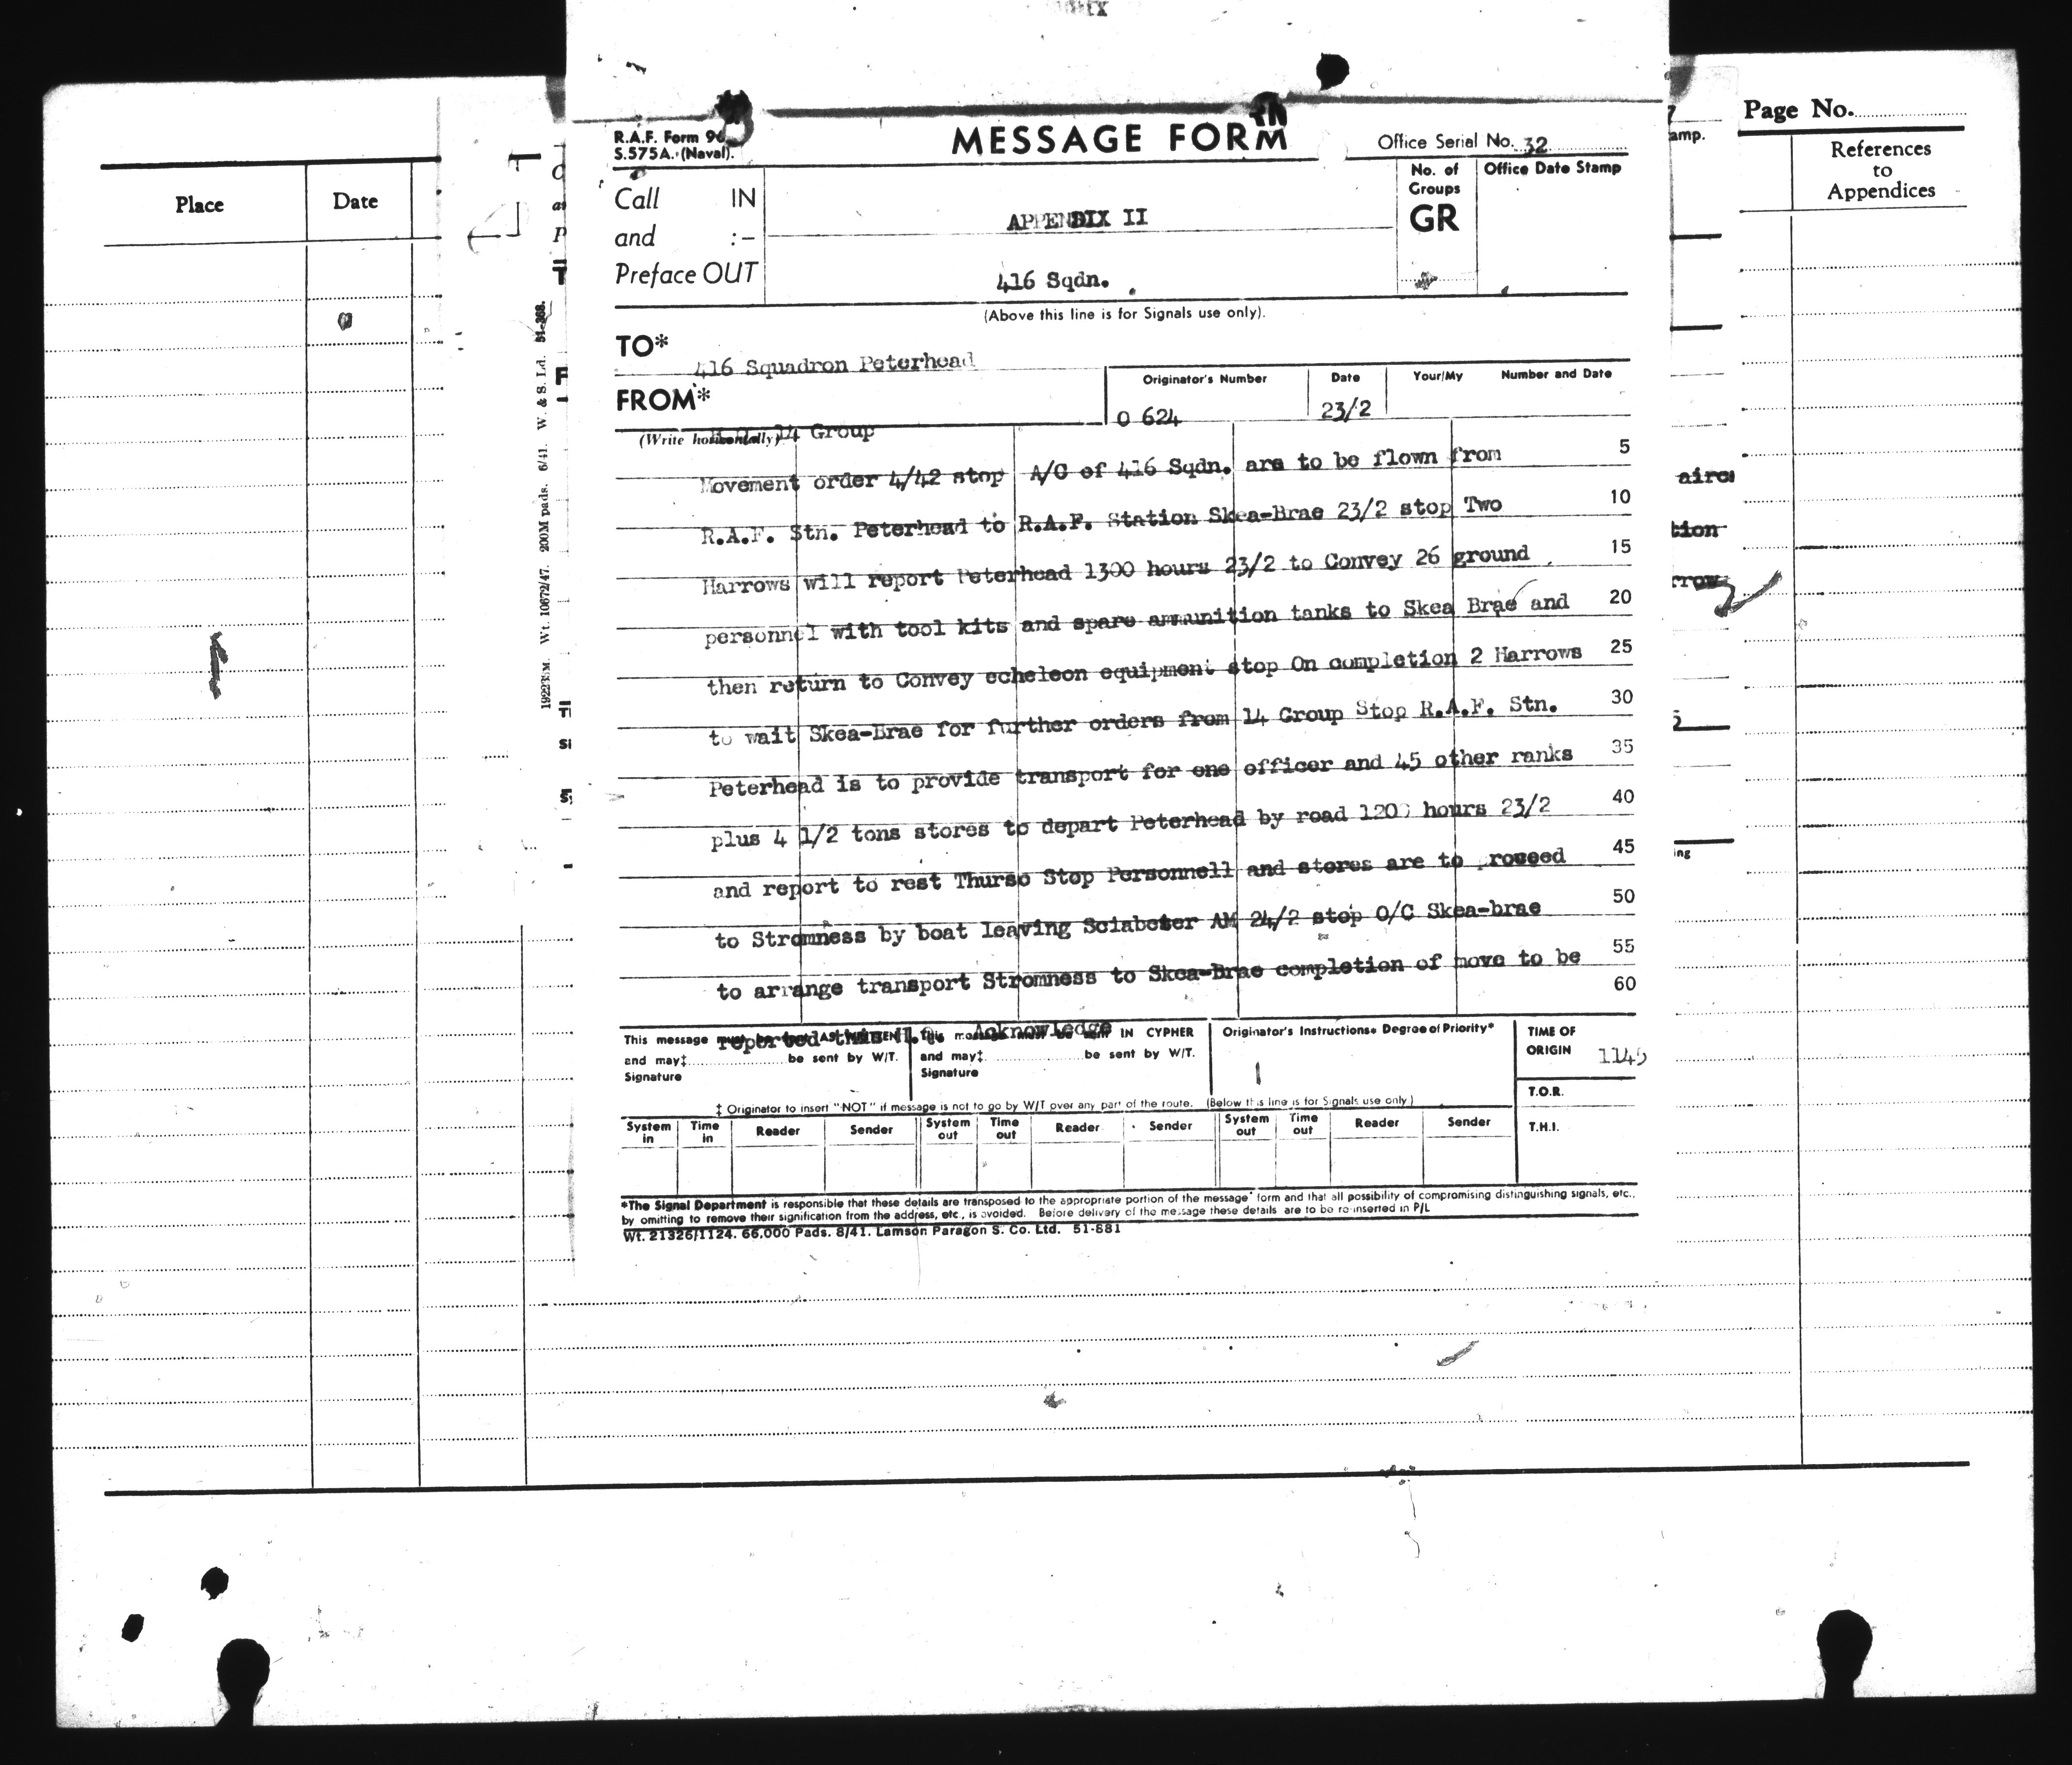 R.A.F. Form 96
S.575A. (Naval).
MESSAGE FORM
Office Serial No. 32
Page No.
Place
Date
References
to
Appendices
Call IN
and :-
Preface OUT
APPENDIX II
416 Sqdn.
No. of
Groups
GR
Office Date Stamp
(Above this line is for Signals use only).
TO*
416 Squadron Peterhead
FROM*
14 Group
Originator's Number
O 624
Date
23/2
Your/My Number and Date
(Write horizontally)
Movement order 4/42 stop A/C of 416 Sqdn. are to be flown from 5
R.A.F. Stn. Peterhead to R.A.F. Station Skea-Brae 23/2 stop Two 10
Harrows will report Peterhead 1300 hours 23/2 to Convey 26 ground 15
personnel with tool kits and spare ammunition tanks to Skea Brae and 20
then return to Convey echeleon equipment stop On completion 2 Harrows 25
to wait Skea-Brae for further orders from 14 Group Stop R.A.F. Stn. 30
Peterhead is to provide transport for one officer and 45 other ranks 35
plus 4 1/2 tons stores to depart Peterhead by road 1200 hours 23/2 40
and report to rest Thurso Stop Personnell and stores are to proceed 45
to Stromness by boat leaving AM 24/2 stop O/C Skea-brae 50
to arrange transport Stromness to Skea-Brae completion of move to be 55
60
reported this H.Q. Acknowledge
This message must be sent AS WRITTEN
and may‡ be sent by W/T.
Signature
This message must be sent IN CYPHER
and may‡ be sent by W/T.
Signature
Originator's Instructions Degree of Priority*
TIME OF
ORIGIN 1145
T.O.R.
T.H.I.
‡ Originator to insert "NOT" if message is not to go by W/T over any part of the route. (Below this line is for Signals use only)
System in Time in Reader Sender System out Time out Reader Sender System out Time out Reader Sender
*The Signal Department is responsible that these details are transposed to the appropriate portion of the message form and that all possibility of compromising distinguishing signals, etc.,
by omitting to remove their signification from the address, etc., is avoided. Before delivery of the message these details are to be re-inserted in P/L
Wt. 21326/1124. 66,000 Pads. 8/41. Lamson Paragon S. Co. Ltd. 51-881
Wt. 10672/47. 200M pads. 6/41. W. & S. Ld. 51-368.
amp.
tion
ing